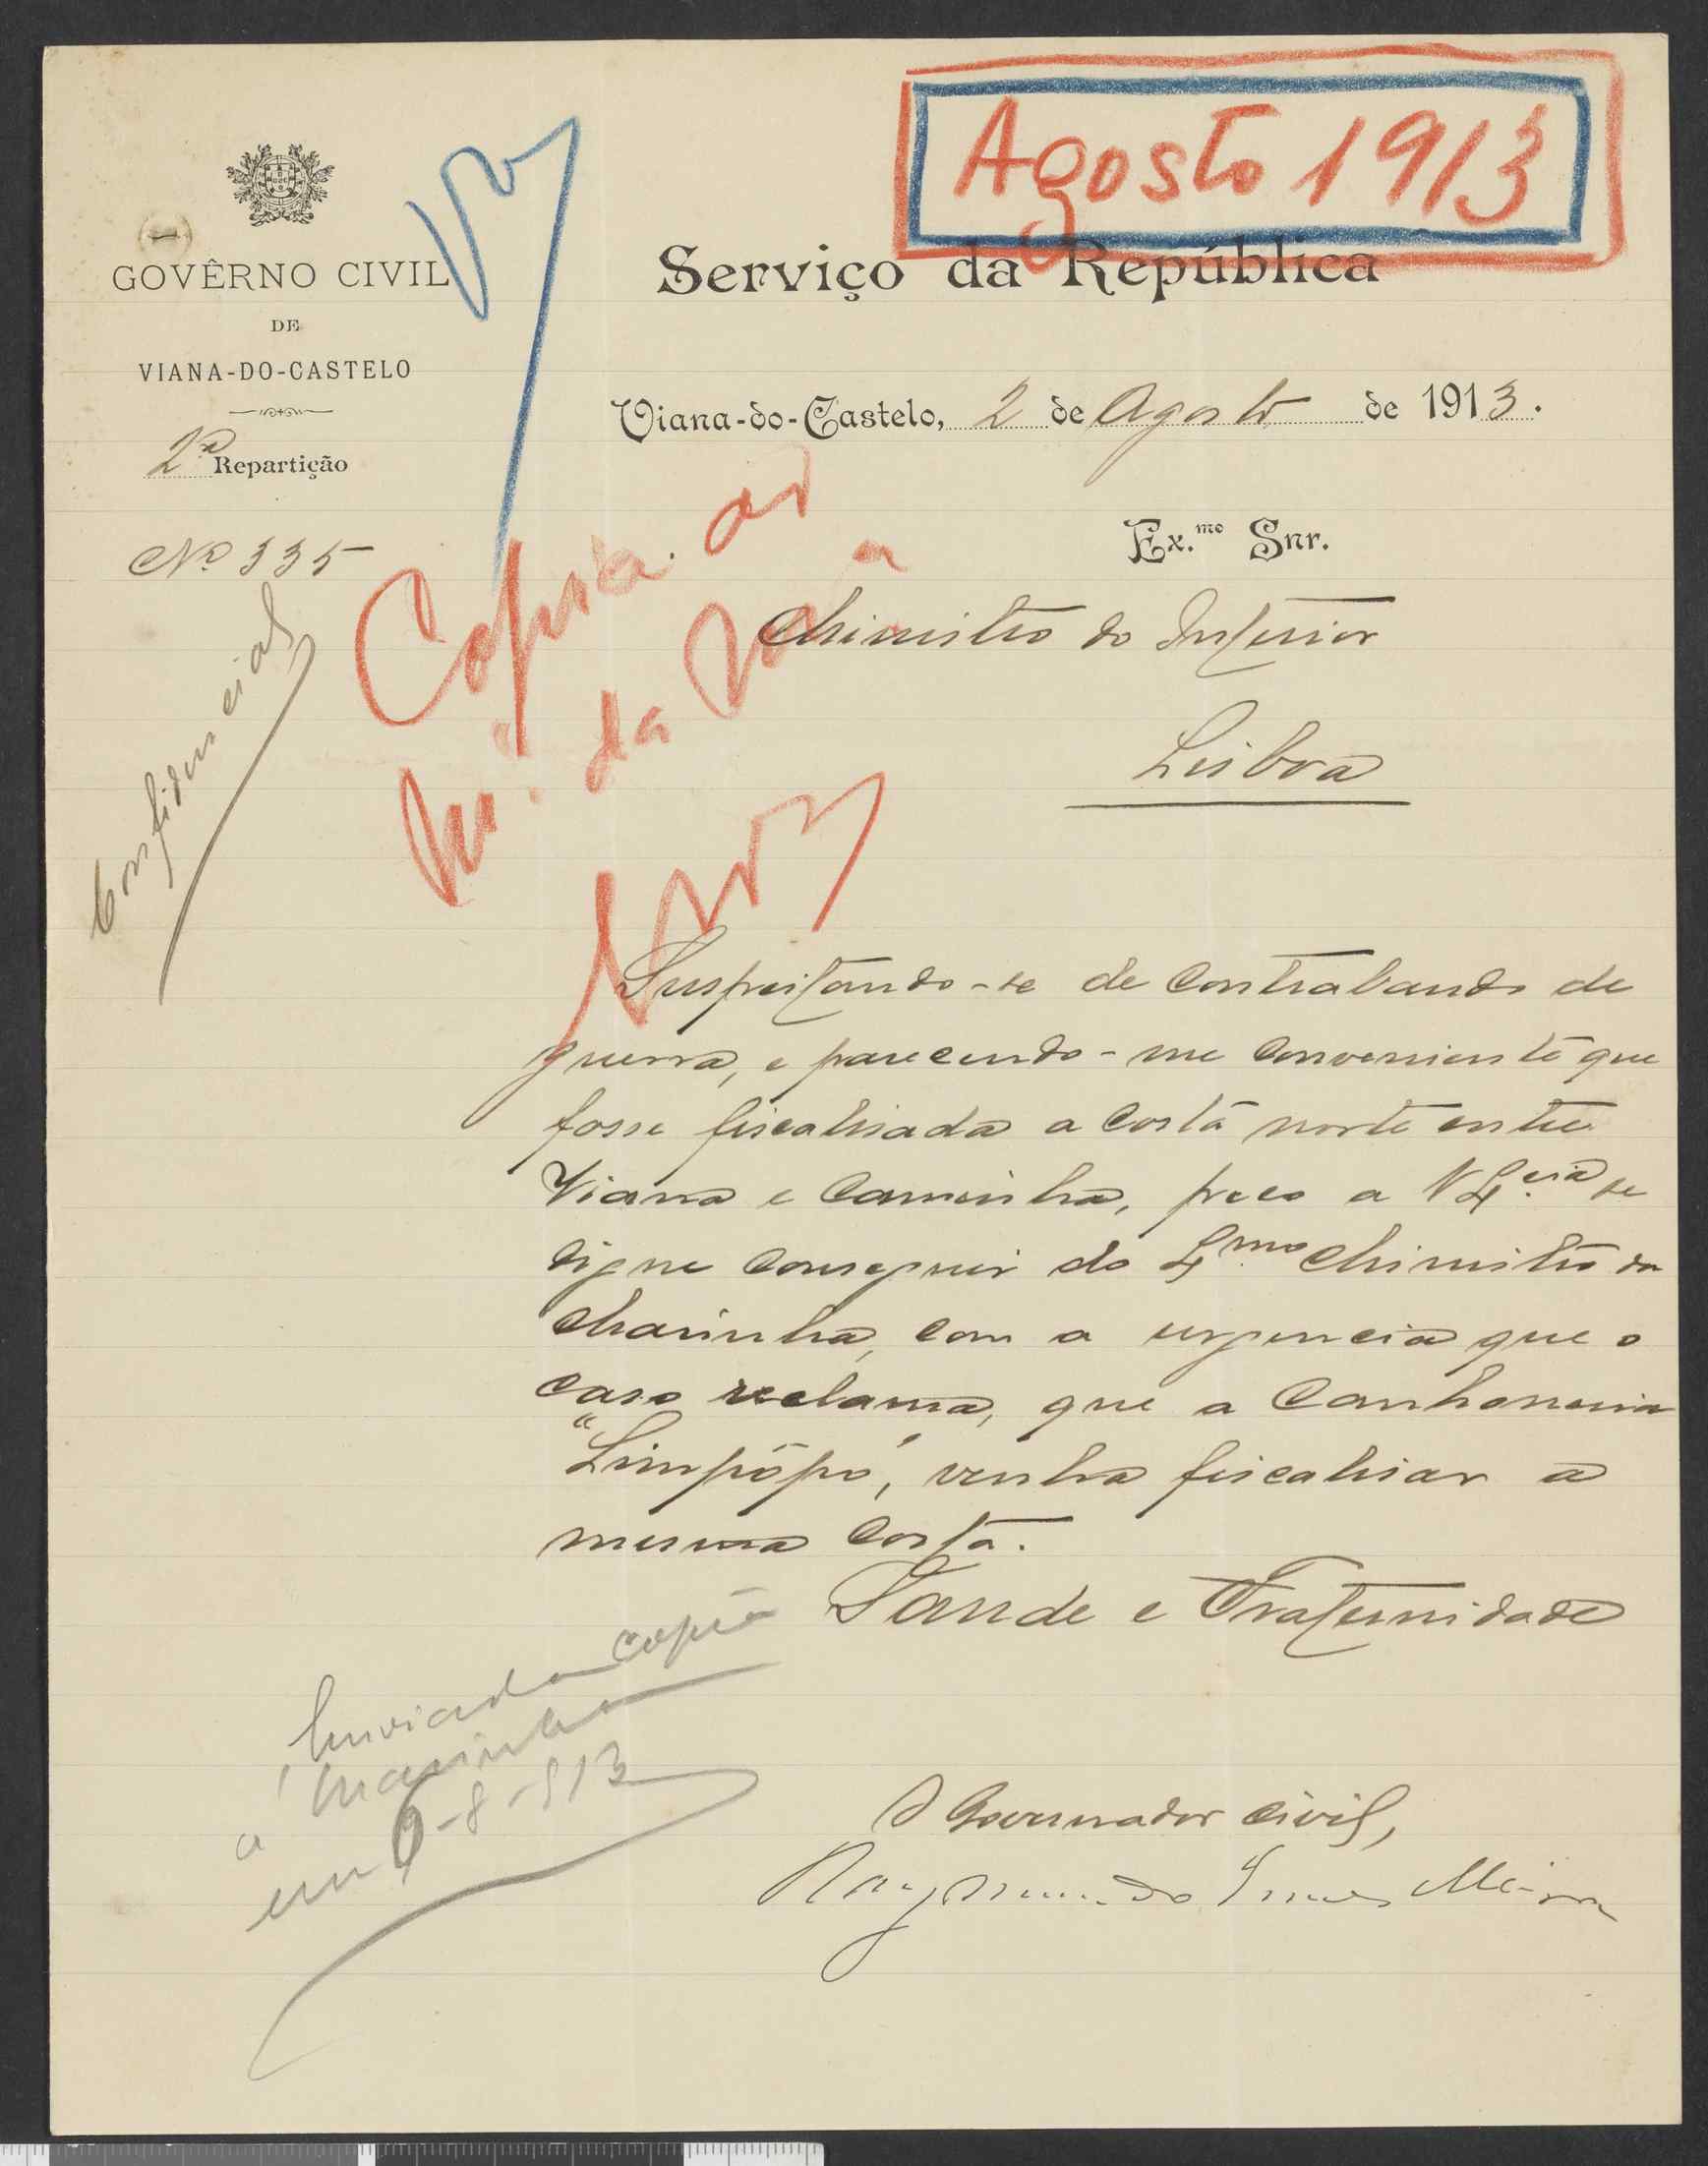 Agosto 1913
GOVÊRNO CIVIL
DE
VIANA-DO-CASTELO
2ª Repartição
Nº 335
Confidencial
Serviço da República
Viana-do-Castelo, 2 de Agosto de 1913.
Ex.mo Snr.
Ministro do Interior
Lisboa
Copia ao
M. da
Suspeitando-se de contrabando de
guerra, e parecendo-me conveniente que
fosse fiscalisada a costa norte entre
Viana e Caminha, peço a V Ex.cia se
digne conseguir do Ex.mo Ministro da
Marinha, com a urgencia que o
caso reclama, que a canhoneira
"Limpôpo", venha fiscalisar a
mesma costa.
Saude e Fraternidade
O Governador Civil,
Raymundo Enes Meira
Enviada copia
á Marinha
em 6-8-913